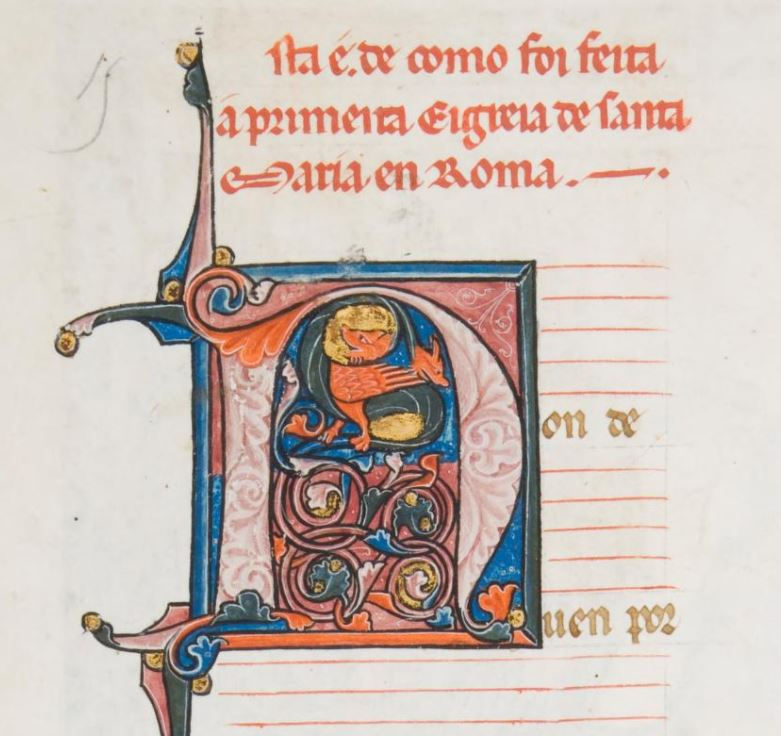 sta é. de como foi feita
a primeira Eigreia de santa
Maria en Roma. —.
N
on de
uen por